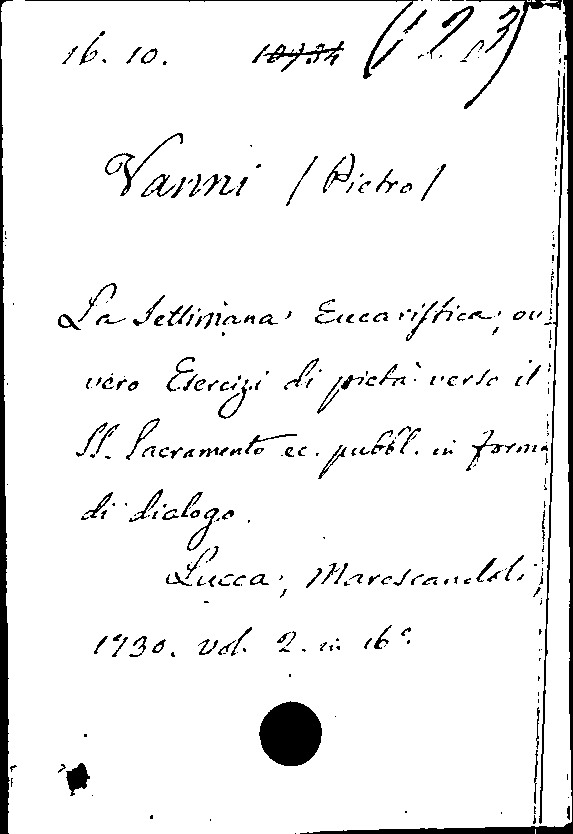 16. 10. 10734 (123)
Vanni / Pietro /
La Settimana Eucaristica, ov-
vero Esercizi di pietà verso il
SS. Sacramento ec. pubbl. in forma
di dialogo.
Lucca, Marescandoli,
1730. vol. 2. in 16°.